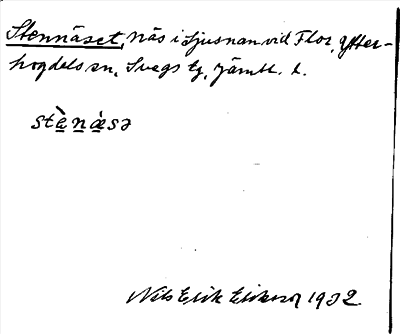 Stennäset, näs i Ljusnan vid Flor, Ytter-
hogdals sn, Svegs tg, Jämtl. l.
stὲn̲ὰsə
Nils Erik Erikson 1932